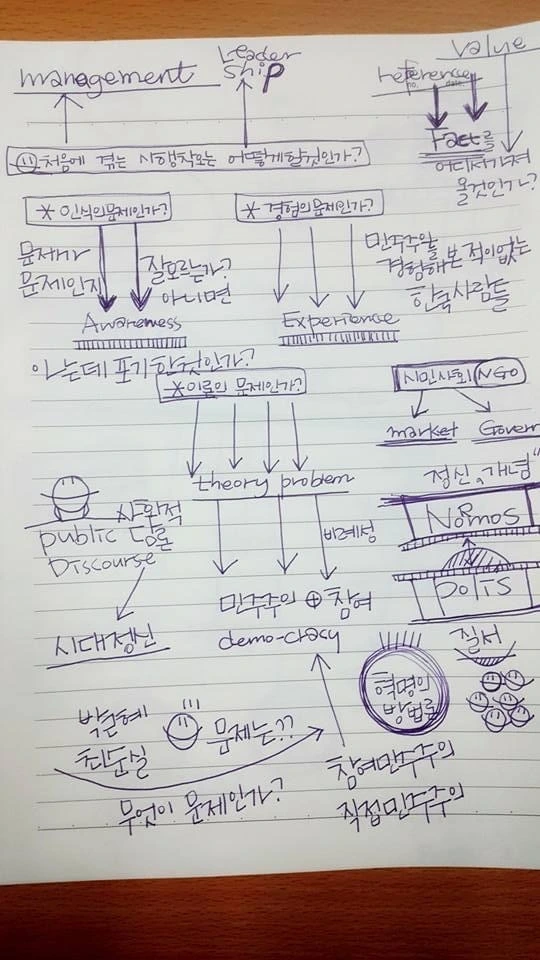 management
Leader
ship
Value
reference
no.
date.
Fact를
어디서가져
올것인가?
처음에 겪는 시행착오는 어떻게할것인가?
* 인식의문제인가?
* 경험의문제인가?
문제가
문제인지
잘모르는가?
아니면
민주주의를
경험해본적이없는
한국사람들
Awareness
Experience
아는데 포기한것인가?
*이론의 문제인가?
시민사회 NGO
market
Govern
theory problem
정신, 개념"
NoRmos
사회적
public 담론
Discourse
비례성
polis
민주주의 ⊕ 참여
demo-cracy
시대정신
질서
혁명의
방법론
박근혜
최순실
문제는??
무엇이 문제인가?
참여민주주의
직접민주주의